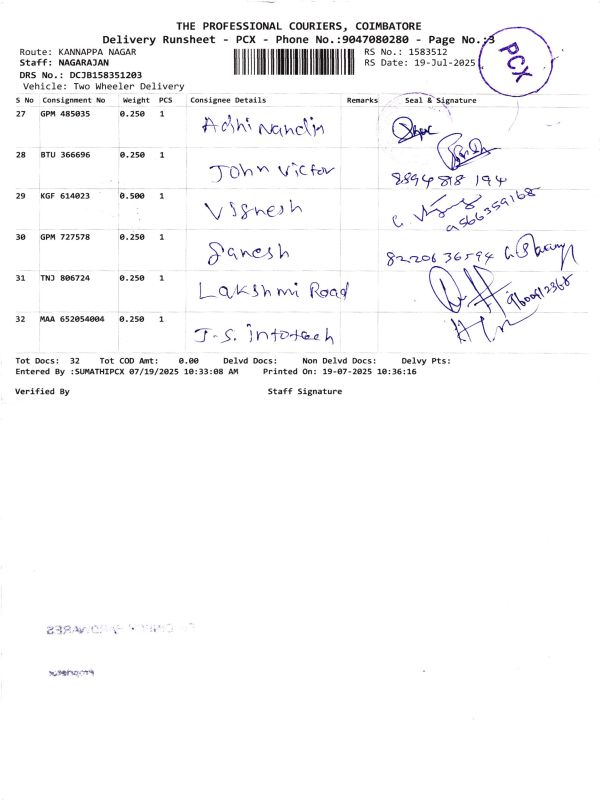 THE PROFESSIONAL COURIERS, COIMBATORE
Delivery Runsheet - PCX - Phone No.:9047080280 - Page No.:3
Route: KANNAPPA NAGAR RS No.: 1583512
Staff: NAGARAJAN RS Date: 19-Jul-2025
PCX
DRS No.: DCJB158351203
Vehicle: Two Wheeler Delivery
S No Consignment No Weight PCS Consignee Details Remarks Seal & Signature
27 GPM 485035 0.250 1 Adhi Nandin
28 BTU 366696 0.250 1 John Victor 8894 818 194
29 KGF 614023 0.500 1 Vignesh 9566359168
30 GPM 727578 0.250 1 Ganesh 8220636594
31 TNJ 806724 0.250 1 Lakshmi Road 9600912368
32 MAA 652054004 0.250 1 J-S. infotech
Tot Docs: 32 Tot COD Amt: 0.00 Delvd Docs: Non Delvd Docs: Delvy Pts:
Entered By :SUMATHIPCX 07/19/2025 10:33:08 AM Printed On: 19-07-2025 10:36:16
Verified By Staff Signature